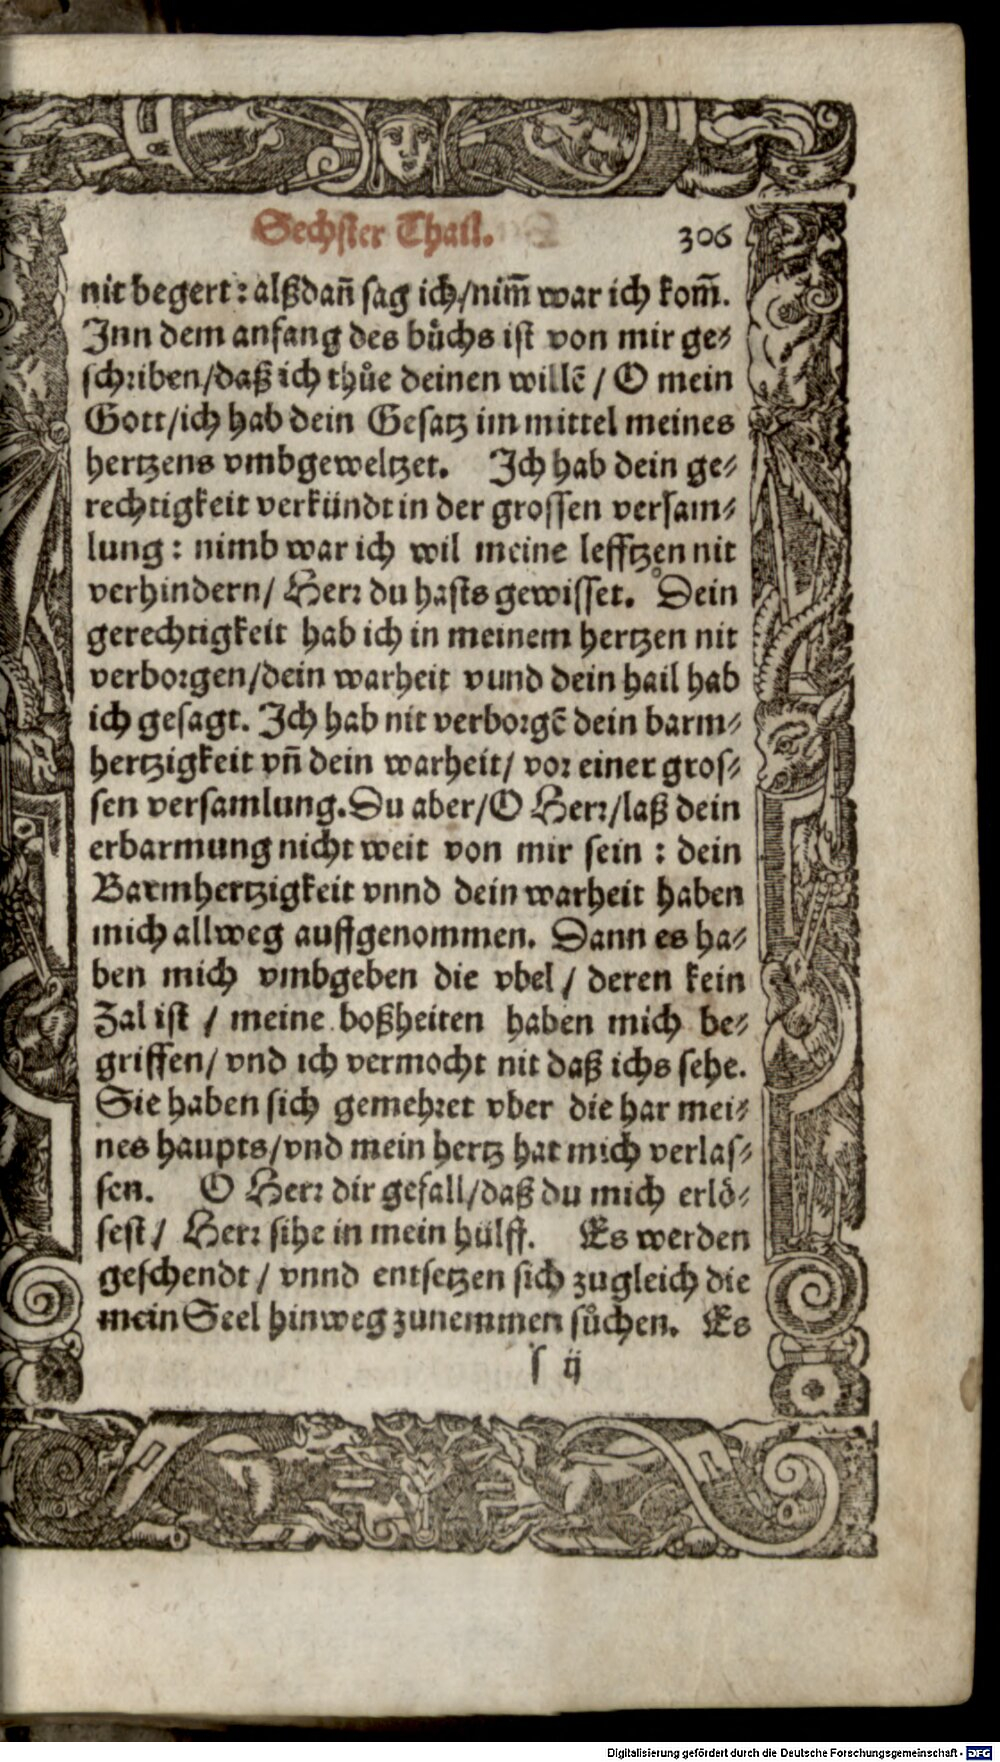 Sechster Thail. 306
nit begert: alßdañ sag ich/nim̃ war ich kom̃.
Inn dem anfang des bůchs ist von mir ge-
schriben/daß ich thůe deinen willẽ / O mein
Gott/ich hab dein Gesatz im mittel meines
hertzens vmbgeweltzet. Ich hab dein ge-
rechtigkeit verkündt in der grossen versam-
lung: nimb war ich wil meine lefftzen nit
verhindern/ Herr du hasts gewisset. Dein
gerechtigkeit hab ich in meinem hertzen nit
verborgen/dein warheit vund dein hail hab
ich gesagt. Ich hab nit verborgẽ dein barm-
hertzigkeit vñ dein warheit/ vor einer gros-
sen versamlung. Du aber/O Herr/laß dein
erbarmung nicht weit von mir sein : dein
Barmhertzigkeit vnnd dein warheit haben
mich allweg auffgenommen. Dann es ha-
ben mich vmbgeben die vbel / deren kein
Zal ist / meine boßheiten haben mich be-
griffen/ vnd ich vermocht nit daß ichs sehe.
Sie haben sich gemehret vber die har mei-
nes haupts/vnd mein hertz hat mich verlas-
sen. O Herr dir gefall/daß du mich erlö-
sest/ Herr sihe in mein hülff. Es werden
geschendt / vnnd entsetzen sich zugleich die
mein Seel hinweg zunemmen sůchen. Es
s ij
Digitalisierung gefördert durch die Deutsche Forschungsgemeinschaft - DFG